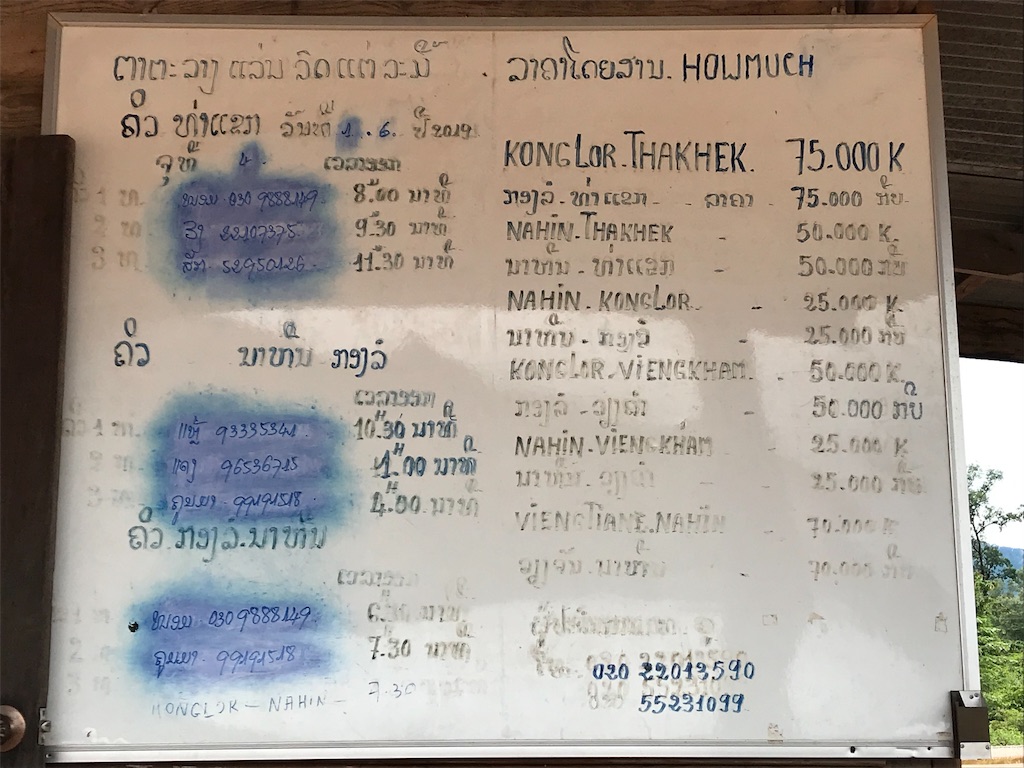 ຕາຕະລາງ ແລ່ນ ລົດ ແຕ່ ລະມື້
ຄິວ ທ່າແຂກ ວັນທີ 1.6. ປີ 2019
ຈຸທີ 4. ເວລາອອກ
030 9888149. 8.00 ນາທີ
22107375 9.30 ນາທີ
52950126 11.30 ນາທີ
ຄິວ ນາຫີນ ກອງລໍ
ເວລາອອກ
93335341. 10.30 ນາທີ
ແດງ 96536715 1.00 ນາທີ
99191518. 2.00 ນາທີ
ຄິວ ກອງລໍ. ນາຫີນ
ເວລາອອກ
030 9888149. 6.30 ນາທີ
99191518 7.30 ນາທີ
KONGLOR - NAHIN - 7.30
ລາຄາໂດຍສານ. HOWMUCH
KONGLOR.THAKHEK. 75.000 K
ກອງລໍ. ທ່າແຂກ - ລາຄາ - 75.000 ກີບ
NAHIN.THAKHEK - 50.000 K.
ນາຫີນ - ທ່າແຂກ - 50.000 ກີບ
NAHIN. KONGLOR - 25.000 K.
ນາຫີນ - ກອງລໍ - 25.000 ກີບ
KONGLOR.VIENGKHAM. - 50.000 K.
ກອງລໍ - ວຽງຄຳ - 50.000 ກີບ
NAHIN.VIENGKHAM - 25.000 K.
ນາຫີນ - ວຽງຄຳ - 25.000 ກີບ
VIENGTIANE.NAHIN - 70.000 K
ວຽງຈັນ. ນາຫີນ - 70,000 ກີບ
020 22013590
55231099